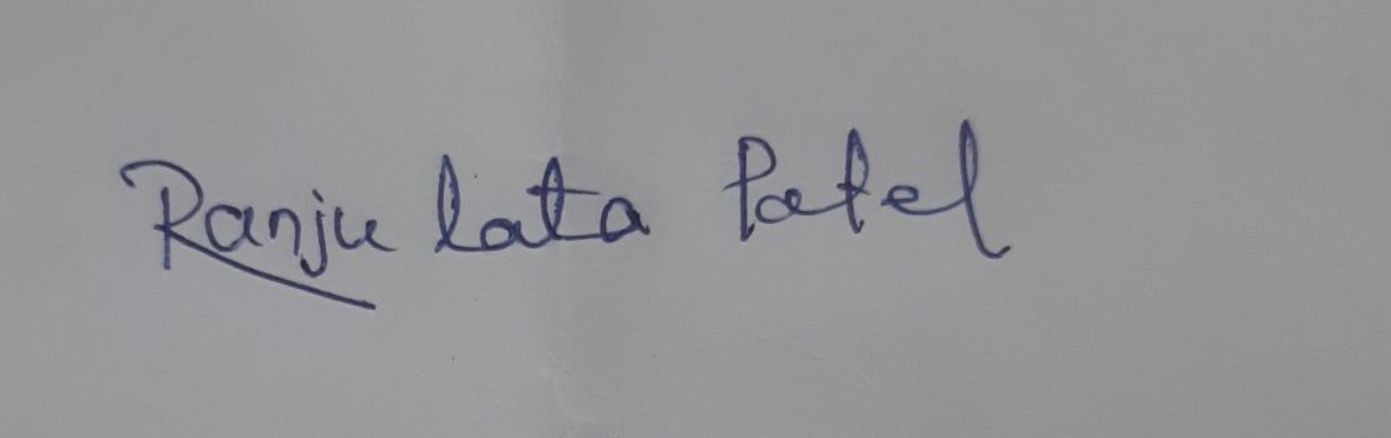 Ranju lata Patel